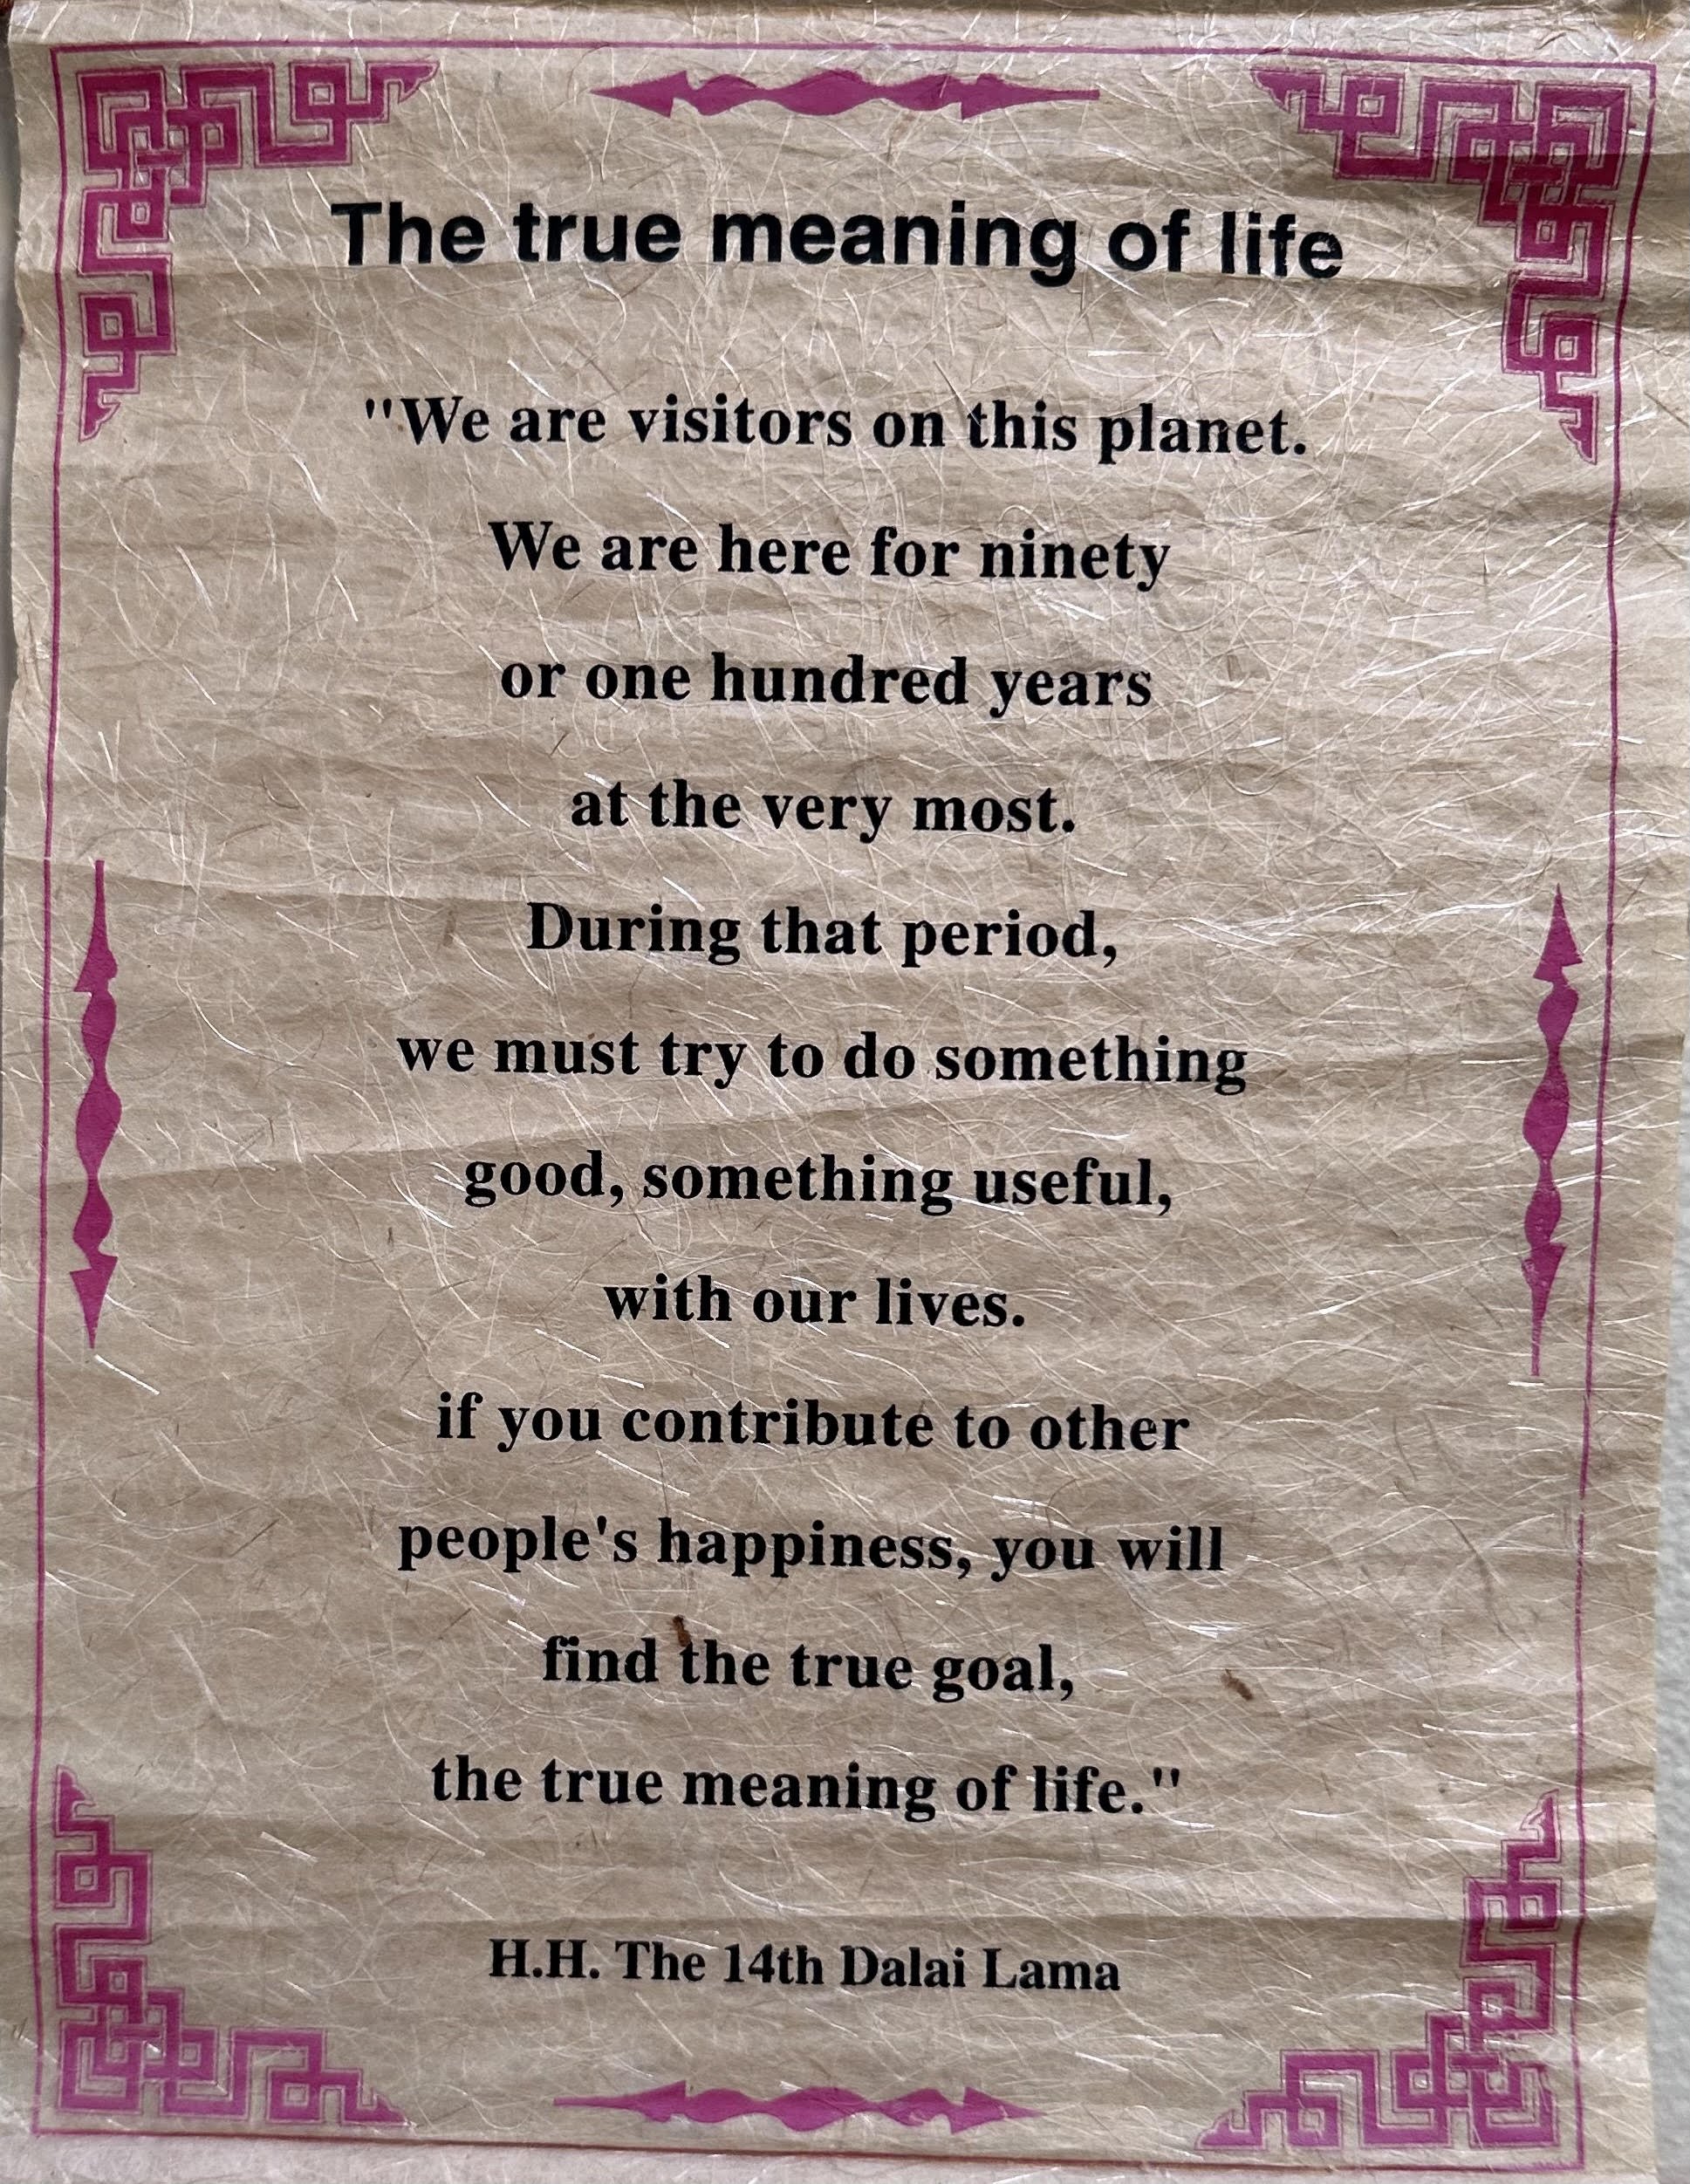 The true meaning of life
"We are visitors on this planet.
We are here for ninety
or one hundred years
at the very most.
During that period,
we must try to do something
good, something useful,
with our lives.
if you contribute to other
people's happiness, you will
find the true goal,
the true meaning of life."
H.H. The 14th Dalai Lama